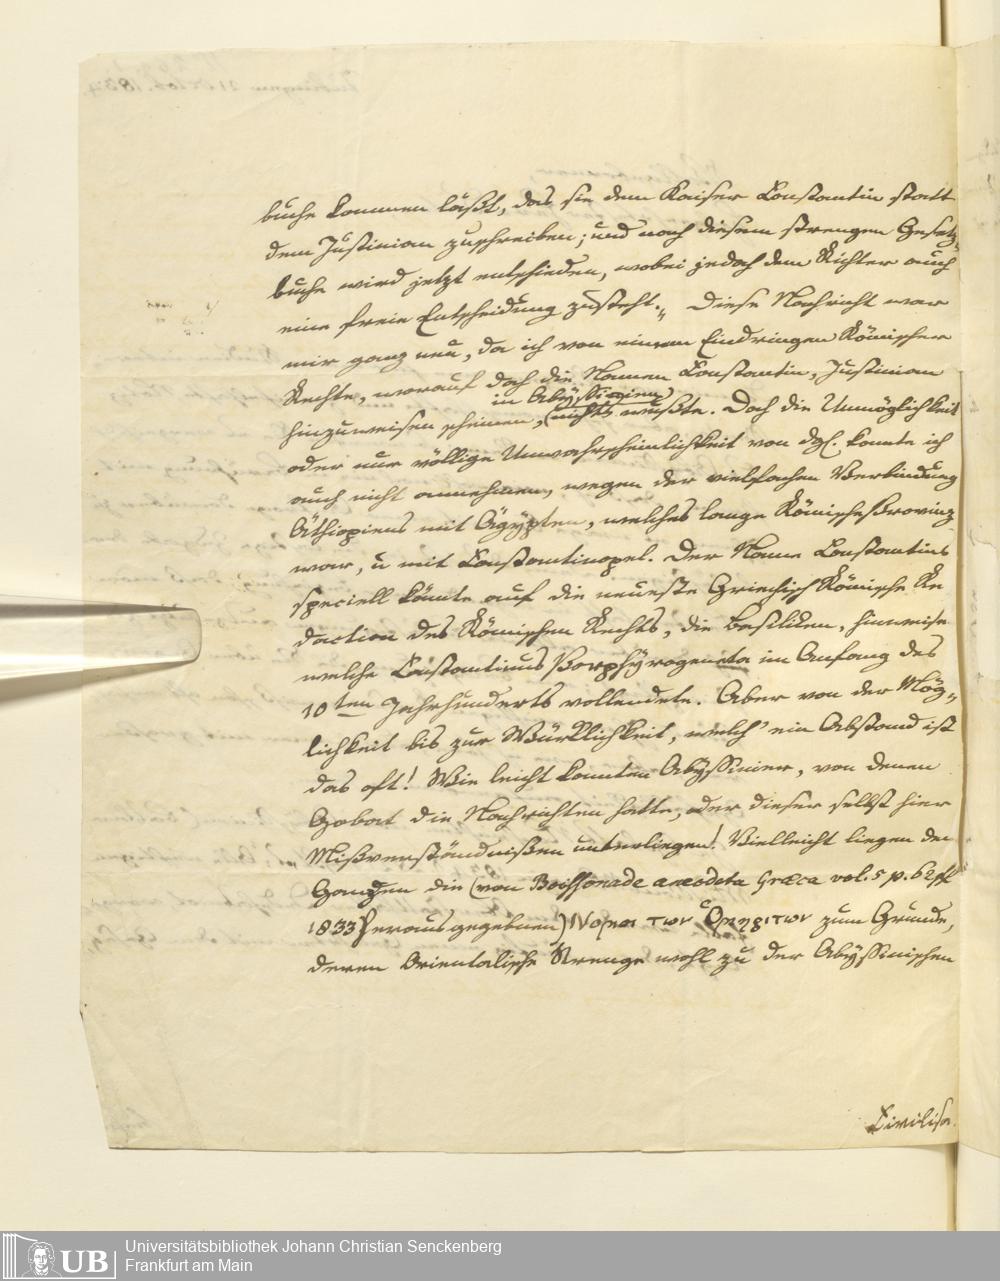 buche kommen läßt, das sie dem Kaiser Constantin statt
dem Justinian zuschreiben; und nach diesem strengen Gesetz-
buche wird jetzt entschieden, wobei jedoch dem Richter auch
eine freie Entscheidung zusteht.„ Diese Nachricht war
mir ganz neu, da ich von einem Eindringen Römischer
Rechte, worauf doch die Namen Constantin, Justinian
in Abyssinien
hinzuweisen scheinen, (nichts wußte. Doch die Unmöglichkeit
oder nur völlige Unwahrscheinlichkeit von dgl. konnte ich
auch nicht annehmen, wegen der vielfachen Verbindung
Äthiopiens mit Ägypten, welches lange Römische Provinz
war, u mit Constantinopel. Der Name Constantins
speciell könnte auf die neueste Griechisch Römische Re
daction des Römischen Rechts, die Basiliken, hinweise
welche Constantinus Porphyrogeneta im Anfang des
10ten Jahrhunderts vollendete. Aber von der Mög„
lichkeit bis zur Würklichkeit, welch' ein Abstand ist
das oft! Wie leicht konnten Abyssinier, von denen
Gobat die Nachrichten hatte, oder dieser selbst hier
Mißverständnißen unterliegen! Vielleicht liegen den
Ganzen die (von Boissonade anecdota Græca vol. 5 p. 62 ff
1833 herausgegebenen) Νομοι των Ὁμηριτων zum Grunde,
deren Orientalische Strenge wohl zu der Abyssinischen
Civilisa.
UB
Universitätsbibliothek Johann Christian Senckenberg
Frankfurt am Main